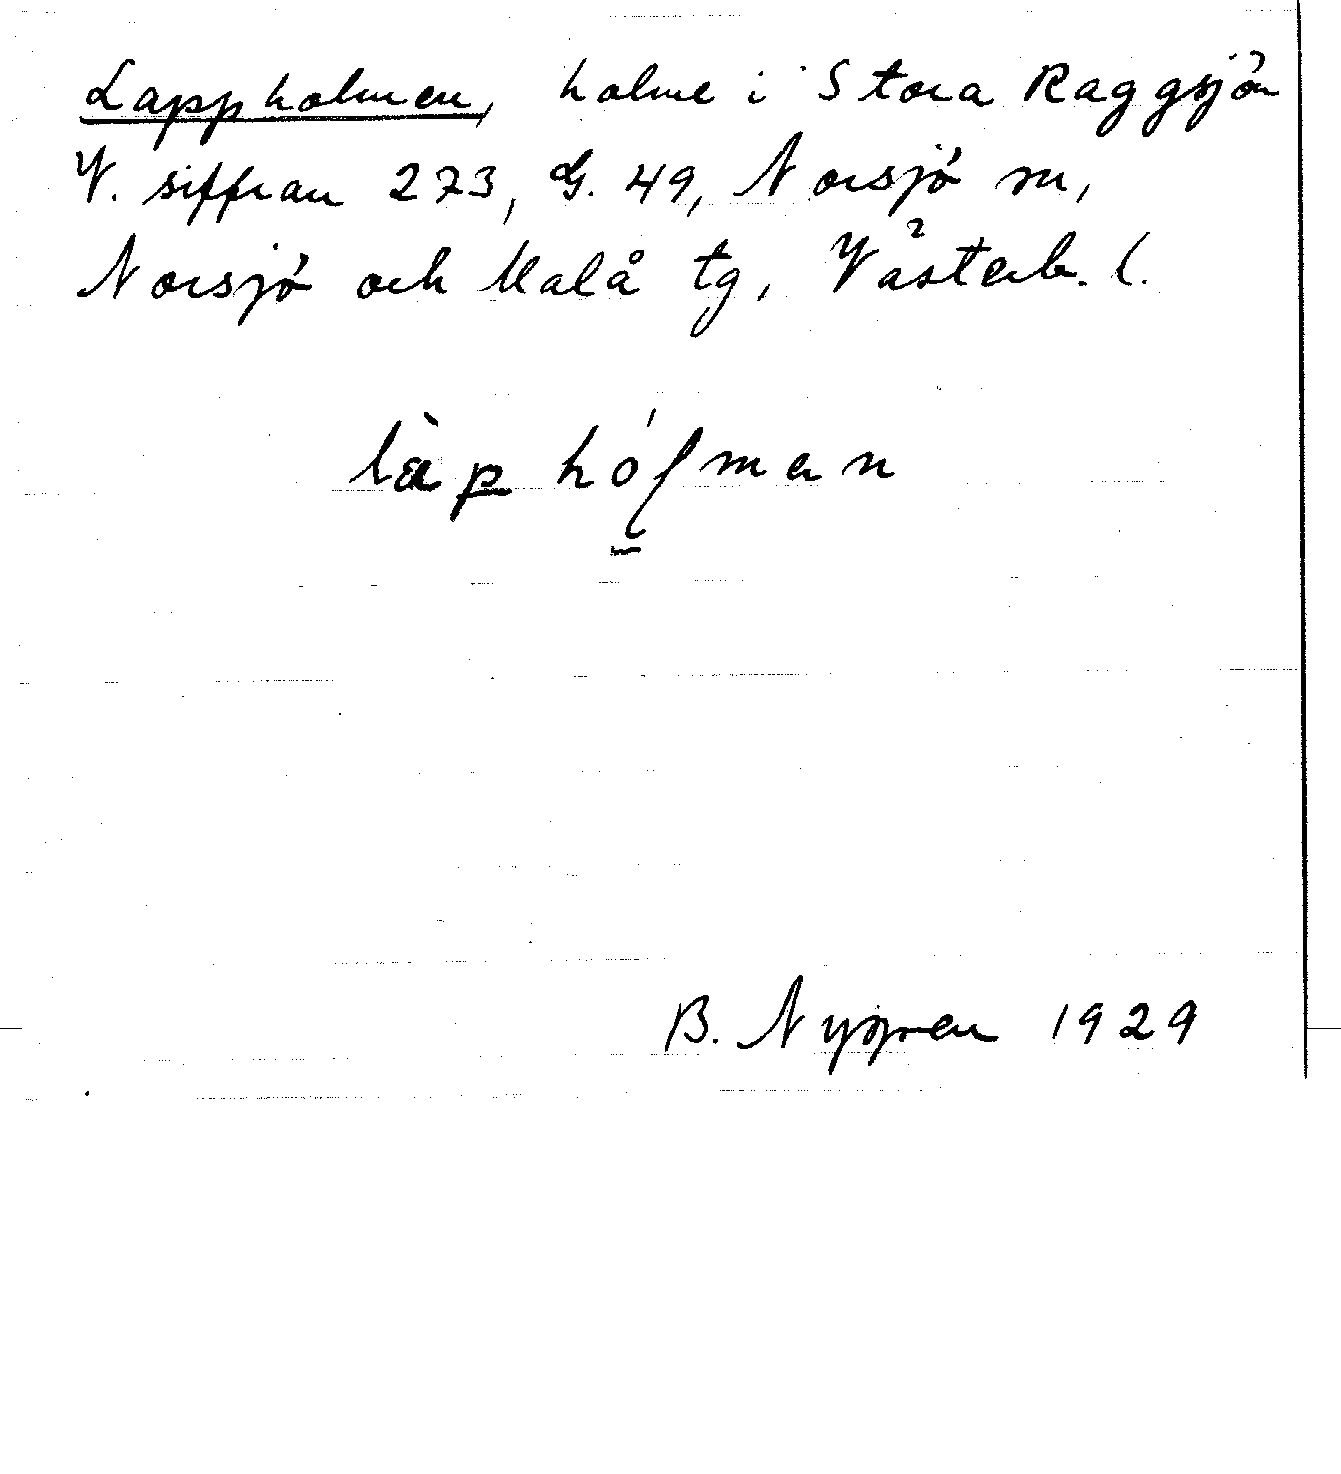 Lappholmen, holme i Stora Raggsjön
V. siffran 273, G. 49, Norsjö sn,
Norsjö och Malå tg, Västerb. l.
B. Nygren 1929